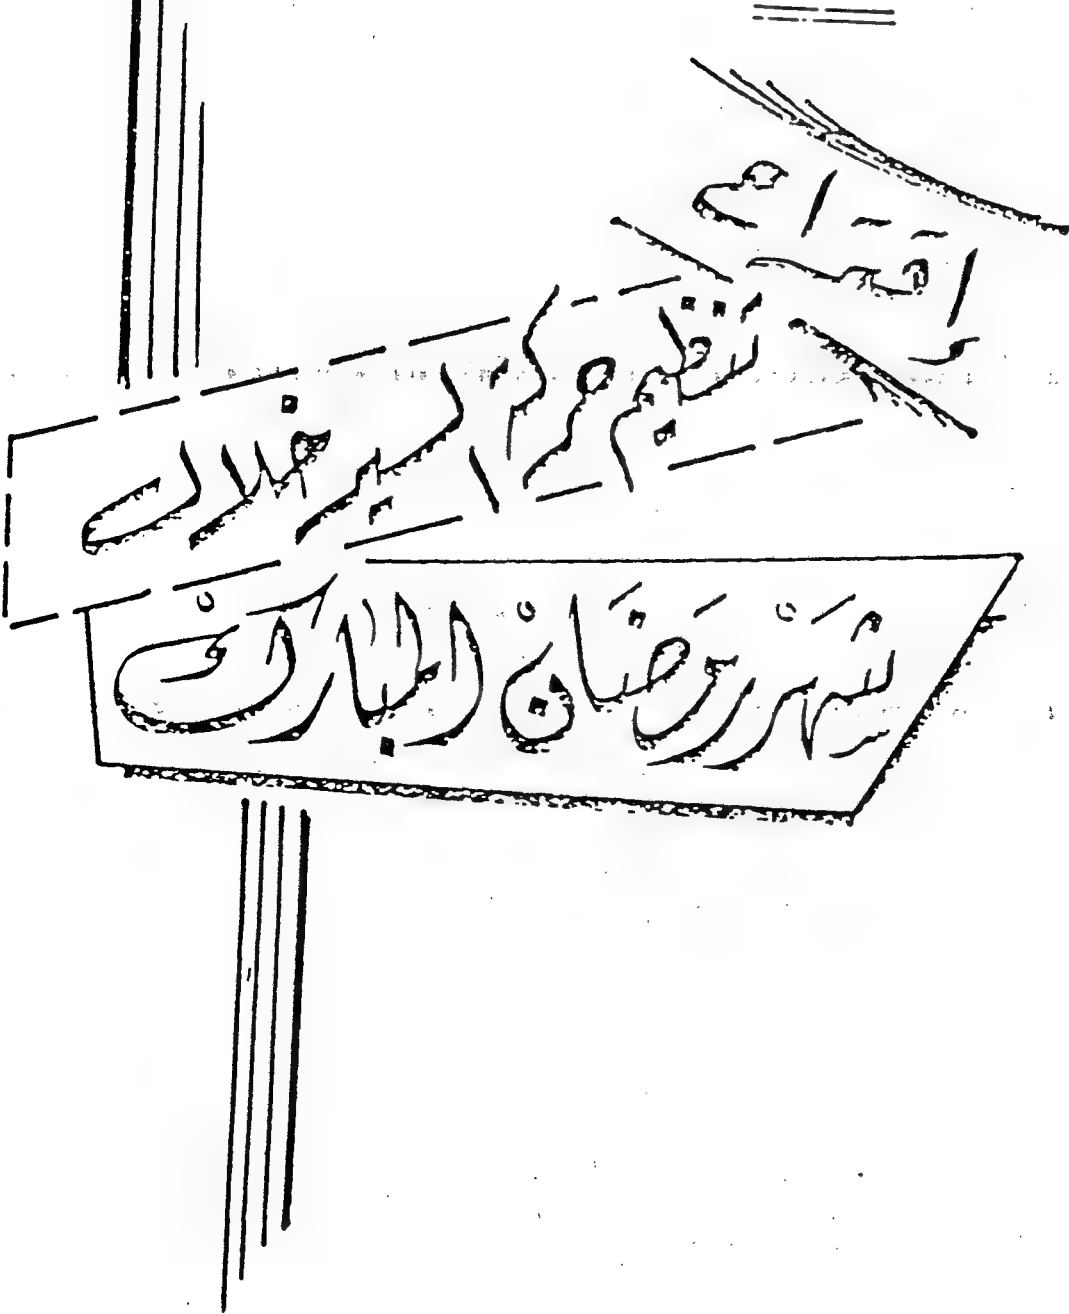 تنظيم حركة السير خلال
شَهْر رَمَضَانْ المبارَكْ